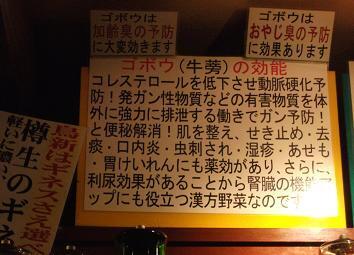 ゴボウは
加齢臭の予防
に大変効きます
ゴボウは
おやじ臭の予防
に効果あります
ゴボウ(牛蒡)の効能
コレステロールを低下させ動脈硬化予
防!発ガン性物質などの有害物質を体
外に強力に排泄する働きでガン予防!
と便秘解消!肌を整え、せき止め・去
痰・口内炎・虫刺され・湿疹・あせも
・胃けいれんにも薬効があり、さらに、
利尿効果があることから腎臓の機能ア
ップにも役立つ漢方野菜なのです
鳥新はギネスさえ選べ
樽生のギネ
軽いに濃い